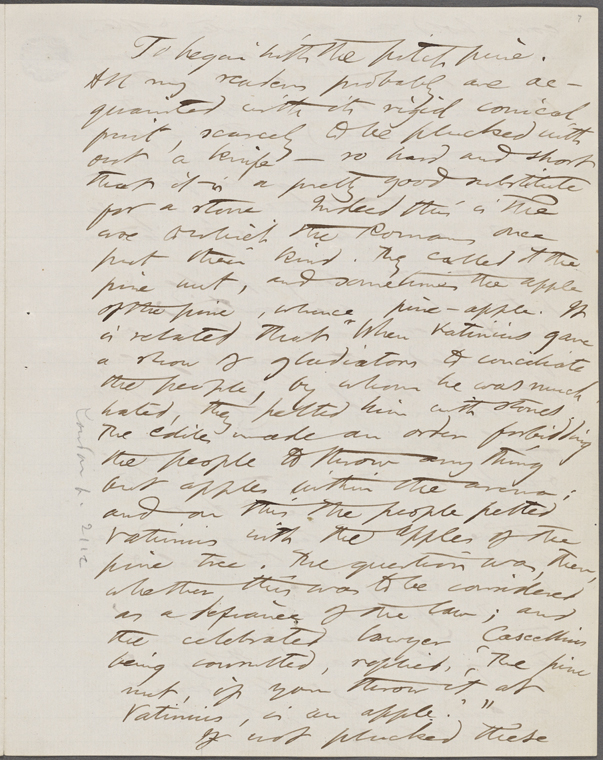 To begin with the pitch pine.
All my readers probably are ac-
quainted with its rigid conical
fruit, scarcely to be plucked with
out a knife — so hard and short
that it is a pretty good substitute
for a stone Indeed this is the
use to which the Romans once
put their kind. They called it the
pine nut, and sometimes the apple
of the pine, whence pine-apple. It
is related that "When Vatinius gave
a show of gladiators to conciliate
the people, by whom he was much
hated, they pelted him with stones.
The ediles made an order forbidding
the people to throw any thing
but apples within the arena;
and on this the people pelted
Vatinius with the apples of the
pine tree. The question was, then,
whether this was to be considered
as a defiance of the law; and
the celebrated lawyer Cascellius
being consulted, replied, 'The pine
nut, if you throw it at
Vatinius, is an apple.'"
If not plucked these
Loudon 4. 2112